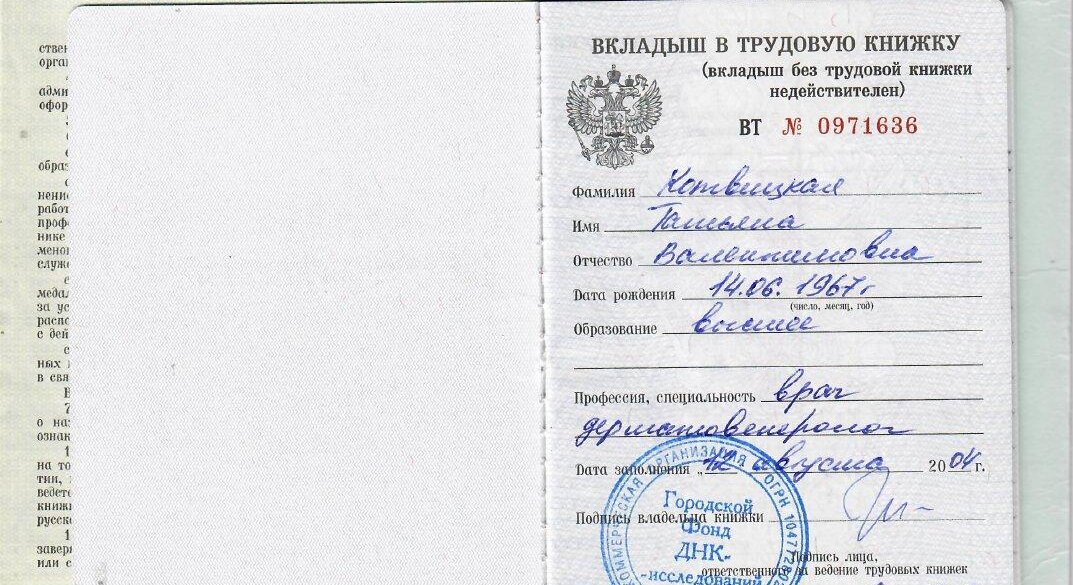 ствен
орга
адми
офор
образ
нени
работ
проф
нике
меног
служе
медал
за ус
распо
с дей
ных
в свя
о наз
ознак
на то
тии,
ведетс
книжк
русск
завер
или с
ВКЛАДЫШ В ТРУДОВУЮ КНИЖКУ
(вкладыш без трудовой книжки
недействителен)
ВТ № 0971636
Фамилия Котвицкая
Имя Татьяна
Отчество Валентиновна
Дата рождения 14.06.1967г
(число, месяц, год)
Образование высшее
Профессия, специальность врач
дерматовенеролог
Дата заполнения „12 августа 2004 г.
Подпись владельца книжки
Подпись лица,
ответственного за ведение трудовых книжек
КОММЕРЧЕСКАЯ ОРГАНИЗАЦИЯ ОГРН 10477
Городской
Фонд
ДНК-
-исследований